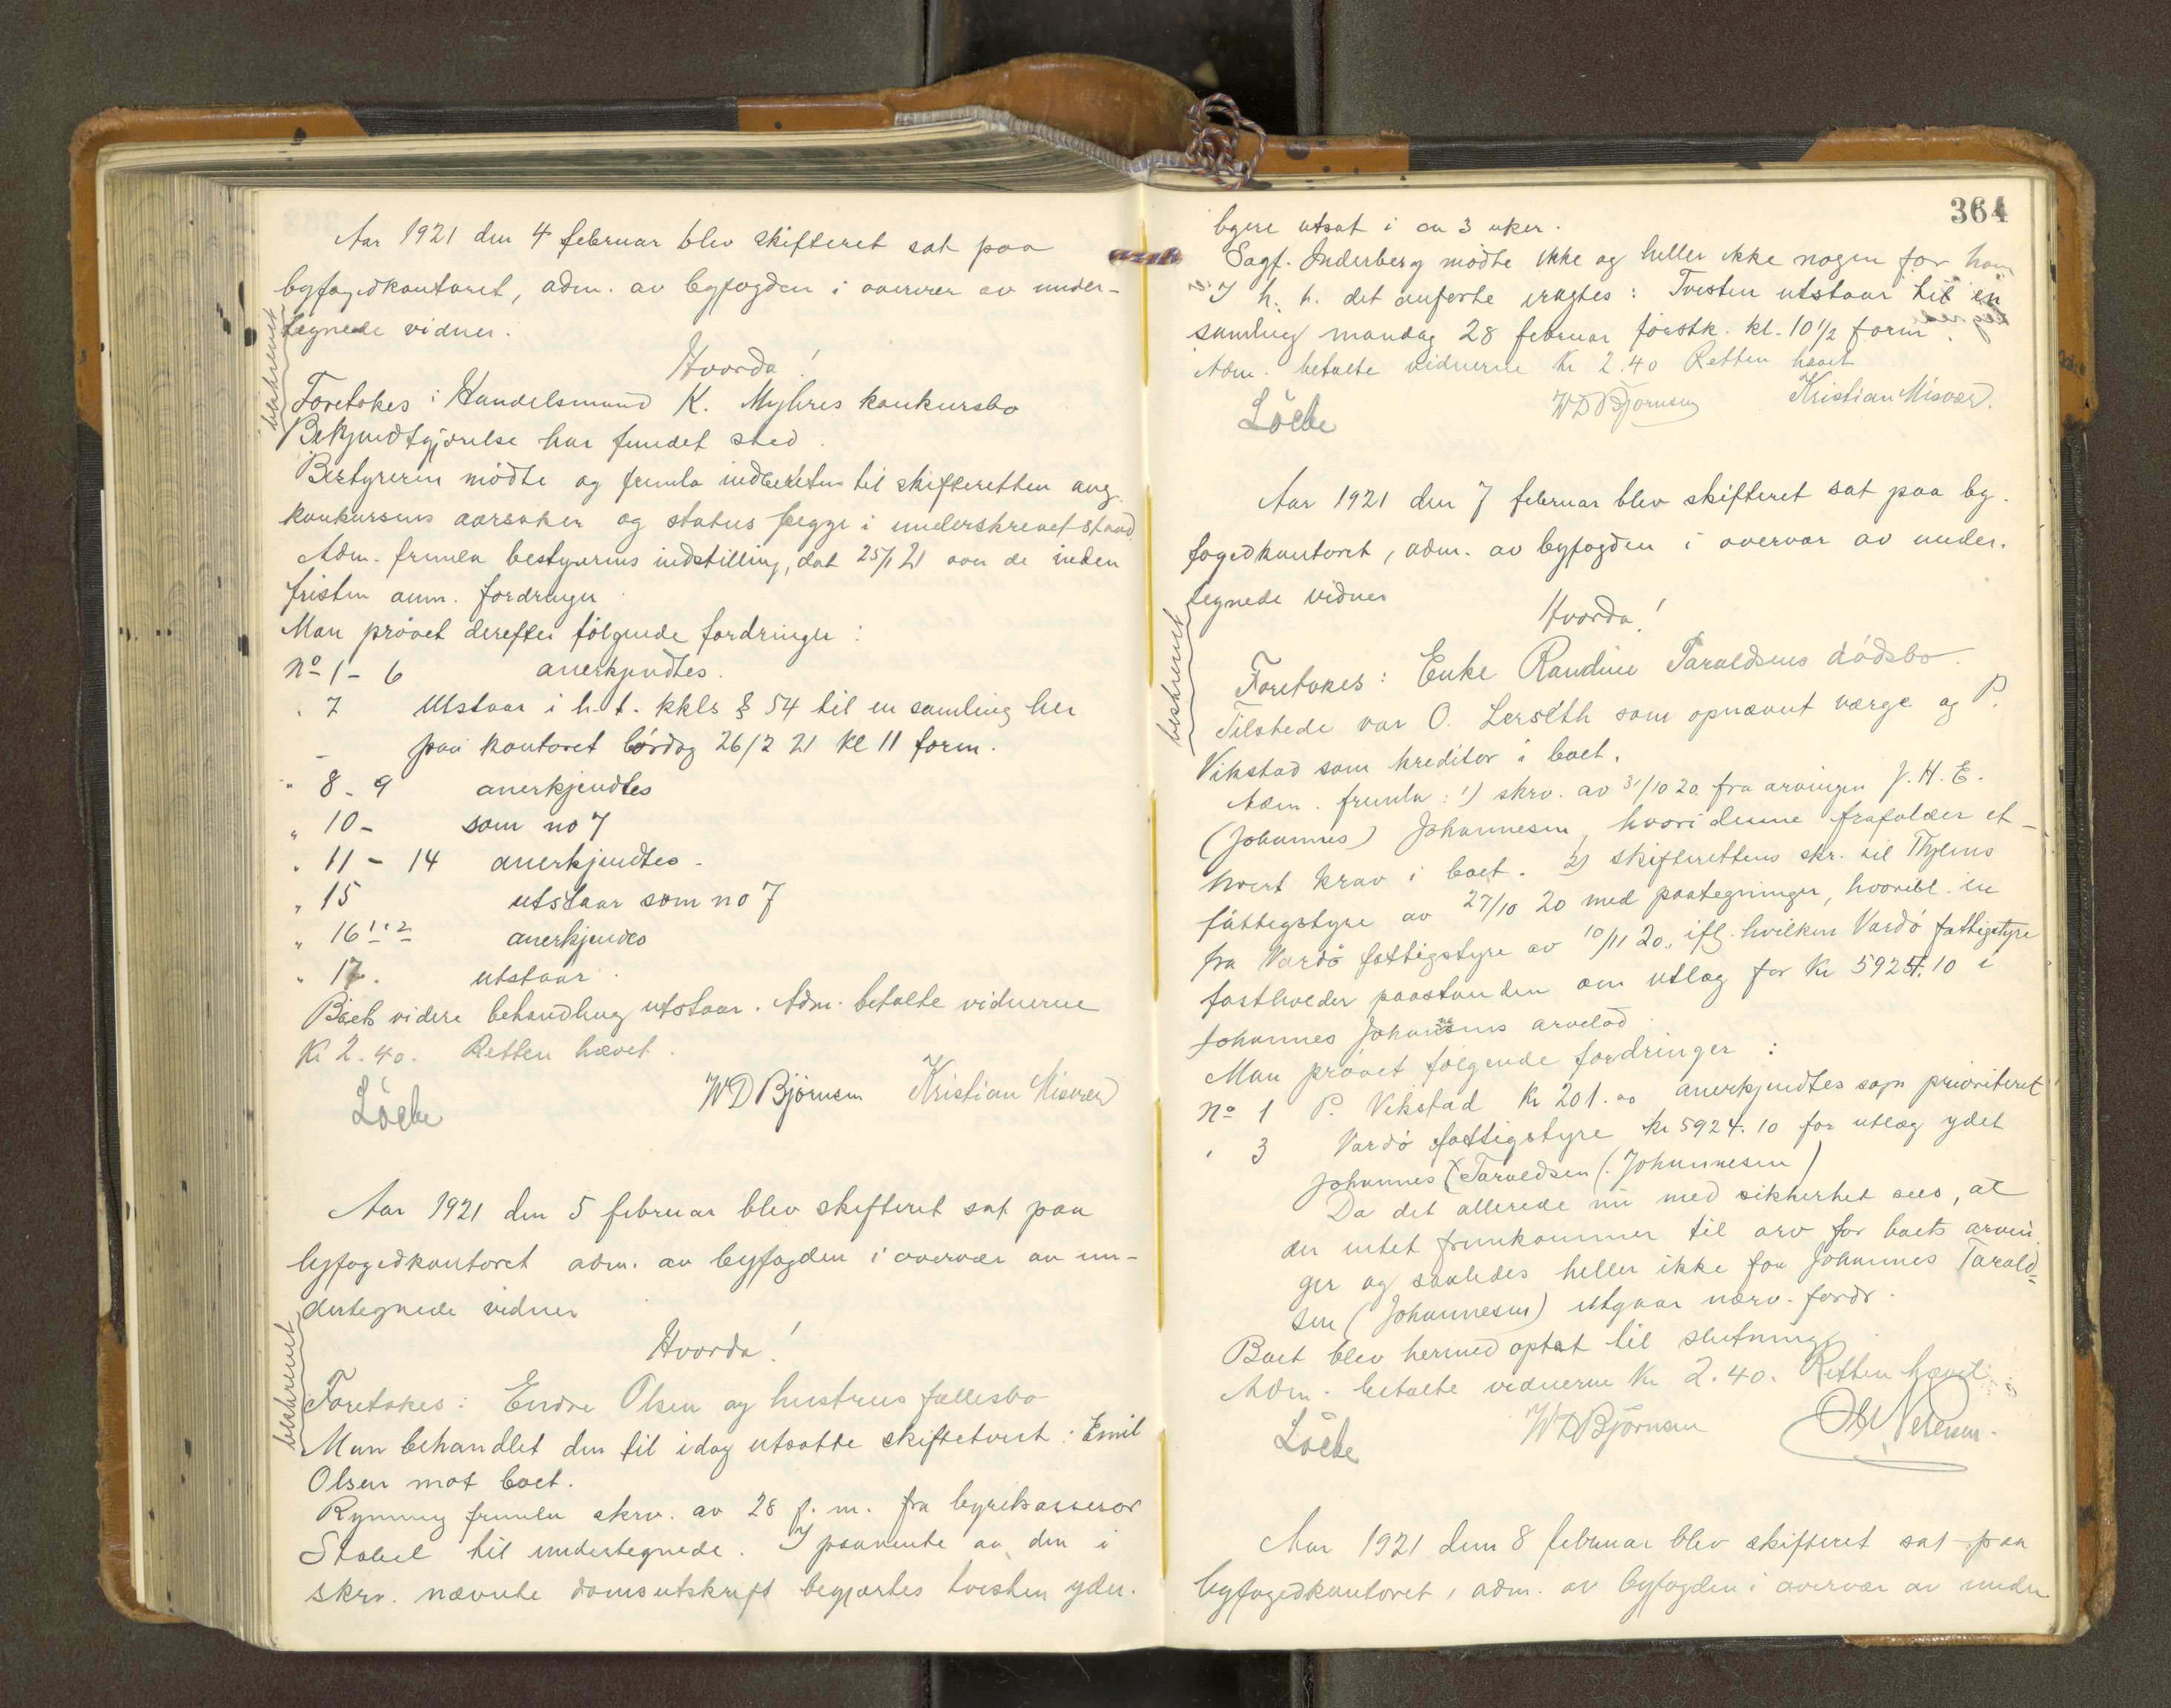 Aar 1921 den 4 februar blev skifteret sat paa
byfogedkontoret, adm. av byfogden i overvær av under-
tegnede vidner.
Hvorda!
beskrevet
Foretokes: Handelsmand K. Myhres konkursbo
Bekjendtgjørelse har fundet sted.
Bestyreren mödte og fremla indberetn. til skifteretten ang.
konkursens aarsaker og status begge i underskrevet stand.
Adm. fremla bestyrerens indstilling, dat 25/1 21 over de inden
fristen anm. fordringer
Man prövet derefter fölgende fordringer:
No 1 - 6 anerkjendtes.
" 7 Utstaar i h.t. kkls § 54 til en samling her
paa kontoret lördag 26/2 21 kl 11 form.
" 8 - 9 anerkjendtes
" 10 - som no 7
" 11 - 14 anerkjendtes.
" 15 utstaar som no 7
" 16 1 : 2 anerkjendes
" 17. utstaar.
Boets videre behandling utstaar. Adm. betalte vidnerne
Kr 2.40. Retten hævet.
Löcke WD Björnsen Kristian Misvær
Aar 1921 den 5 februar blev skifteret sat paa
byfogedkontoret adm. av byfogden i overvær av un-
dertegnede vidner
Hvorda!
beskrevet
Foretokes: Endre Olsen og hustrus fællesbo
Man behandlet den til idag utsatte skiftetvist: Emil
Olsen mot boet.
Rynning fremla skrv. av 28 f. m. fra byretsassesor
Stabel til undertegnede. I paavente av den i
skrv. nævnte domsutskrift begjærtes tvisten yder-
364
ligere utsat i ca 3 uker.
Sagf. Inderberg mödte ikke og heller ikke nogen for ham
I h. t. det anførte eragtes: Tvisten utstaar til en
samling mandag 28 februar förstk. kl. 10 1/2 form.
Adm. betalte vidnerne Kr 2.40 Retten hævet
Löcke WD Björnsen Kristian Misvær.
Aar 1921 den 7 februar blev skifteret sat paa by-
fogedkontoret, adm. av byfogden i overvær av under-
tegnede vidner
Hvorda!
beskrevet
Foretokes: Enke Randine Taraldsens dödsbo.
Tilstede var O. Lerseth som opnævnt værge og P.
Vikstad som kreditor i boet.
Adm. fremla: 1) skrv. av 31/10 20. fra arvingen J. H. E.
(Johannes) Johannesen, hvori denne frafalder et-
hvert krav i boet. 2) skifterettens skr. til Thylens
fattigstyre av 27/10 20 med paategninger, hvoribl. en
fra Vardö fattigstyre av 10/11 20, ifl. hvilken Vardö fattigstyre
fastholder paastanden om utlæg for Kr 5924.10 i
Johannes Johannesens arvelod.
Man prövet følgende fordringer:
No 1 P. Vikstad Kr 201.00 anerkjendtes som prioriteret
" 3 Vardö fattigstyre kr 5924.10 for utlæg ydet
Johannes Taraldsen (Johannesen)
Da det allerede nu med sikkerhet sees, at
der intet fremkommer til arv for boets arvin-
ger og saaledes heller ikke for Johannes Tarald=
sen (Johannesen) utgaar nærv. fordr.
Boet blev hermed optat til slutning
Adm. betalte vidnerne Kr 2.40. Retten hævet.
Löcke WD Björnsen
Aar 1921 den 8 februar blev skifteret sat paa
byfogedkontoret, adm. av byfogden i overvær av under